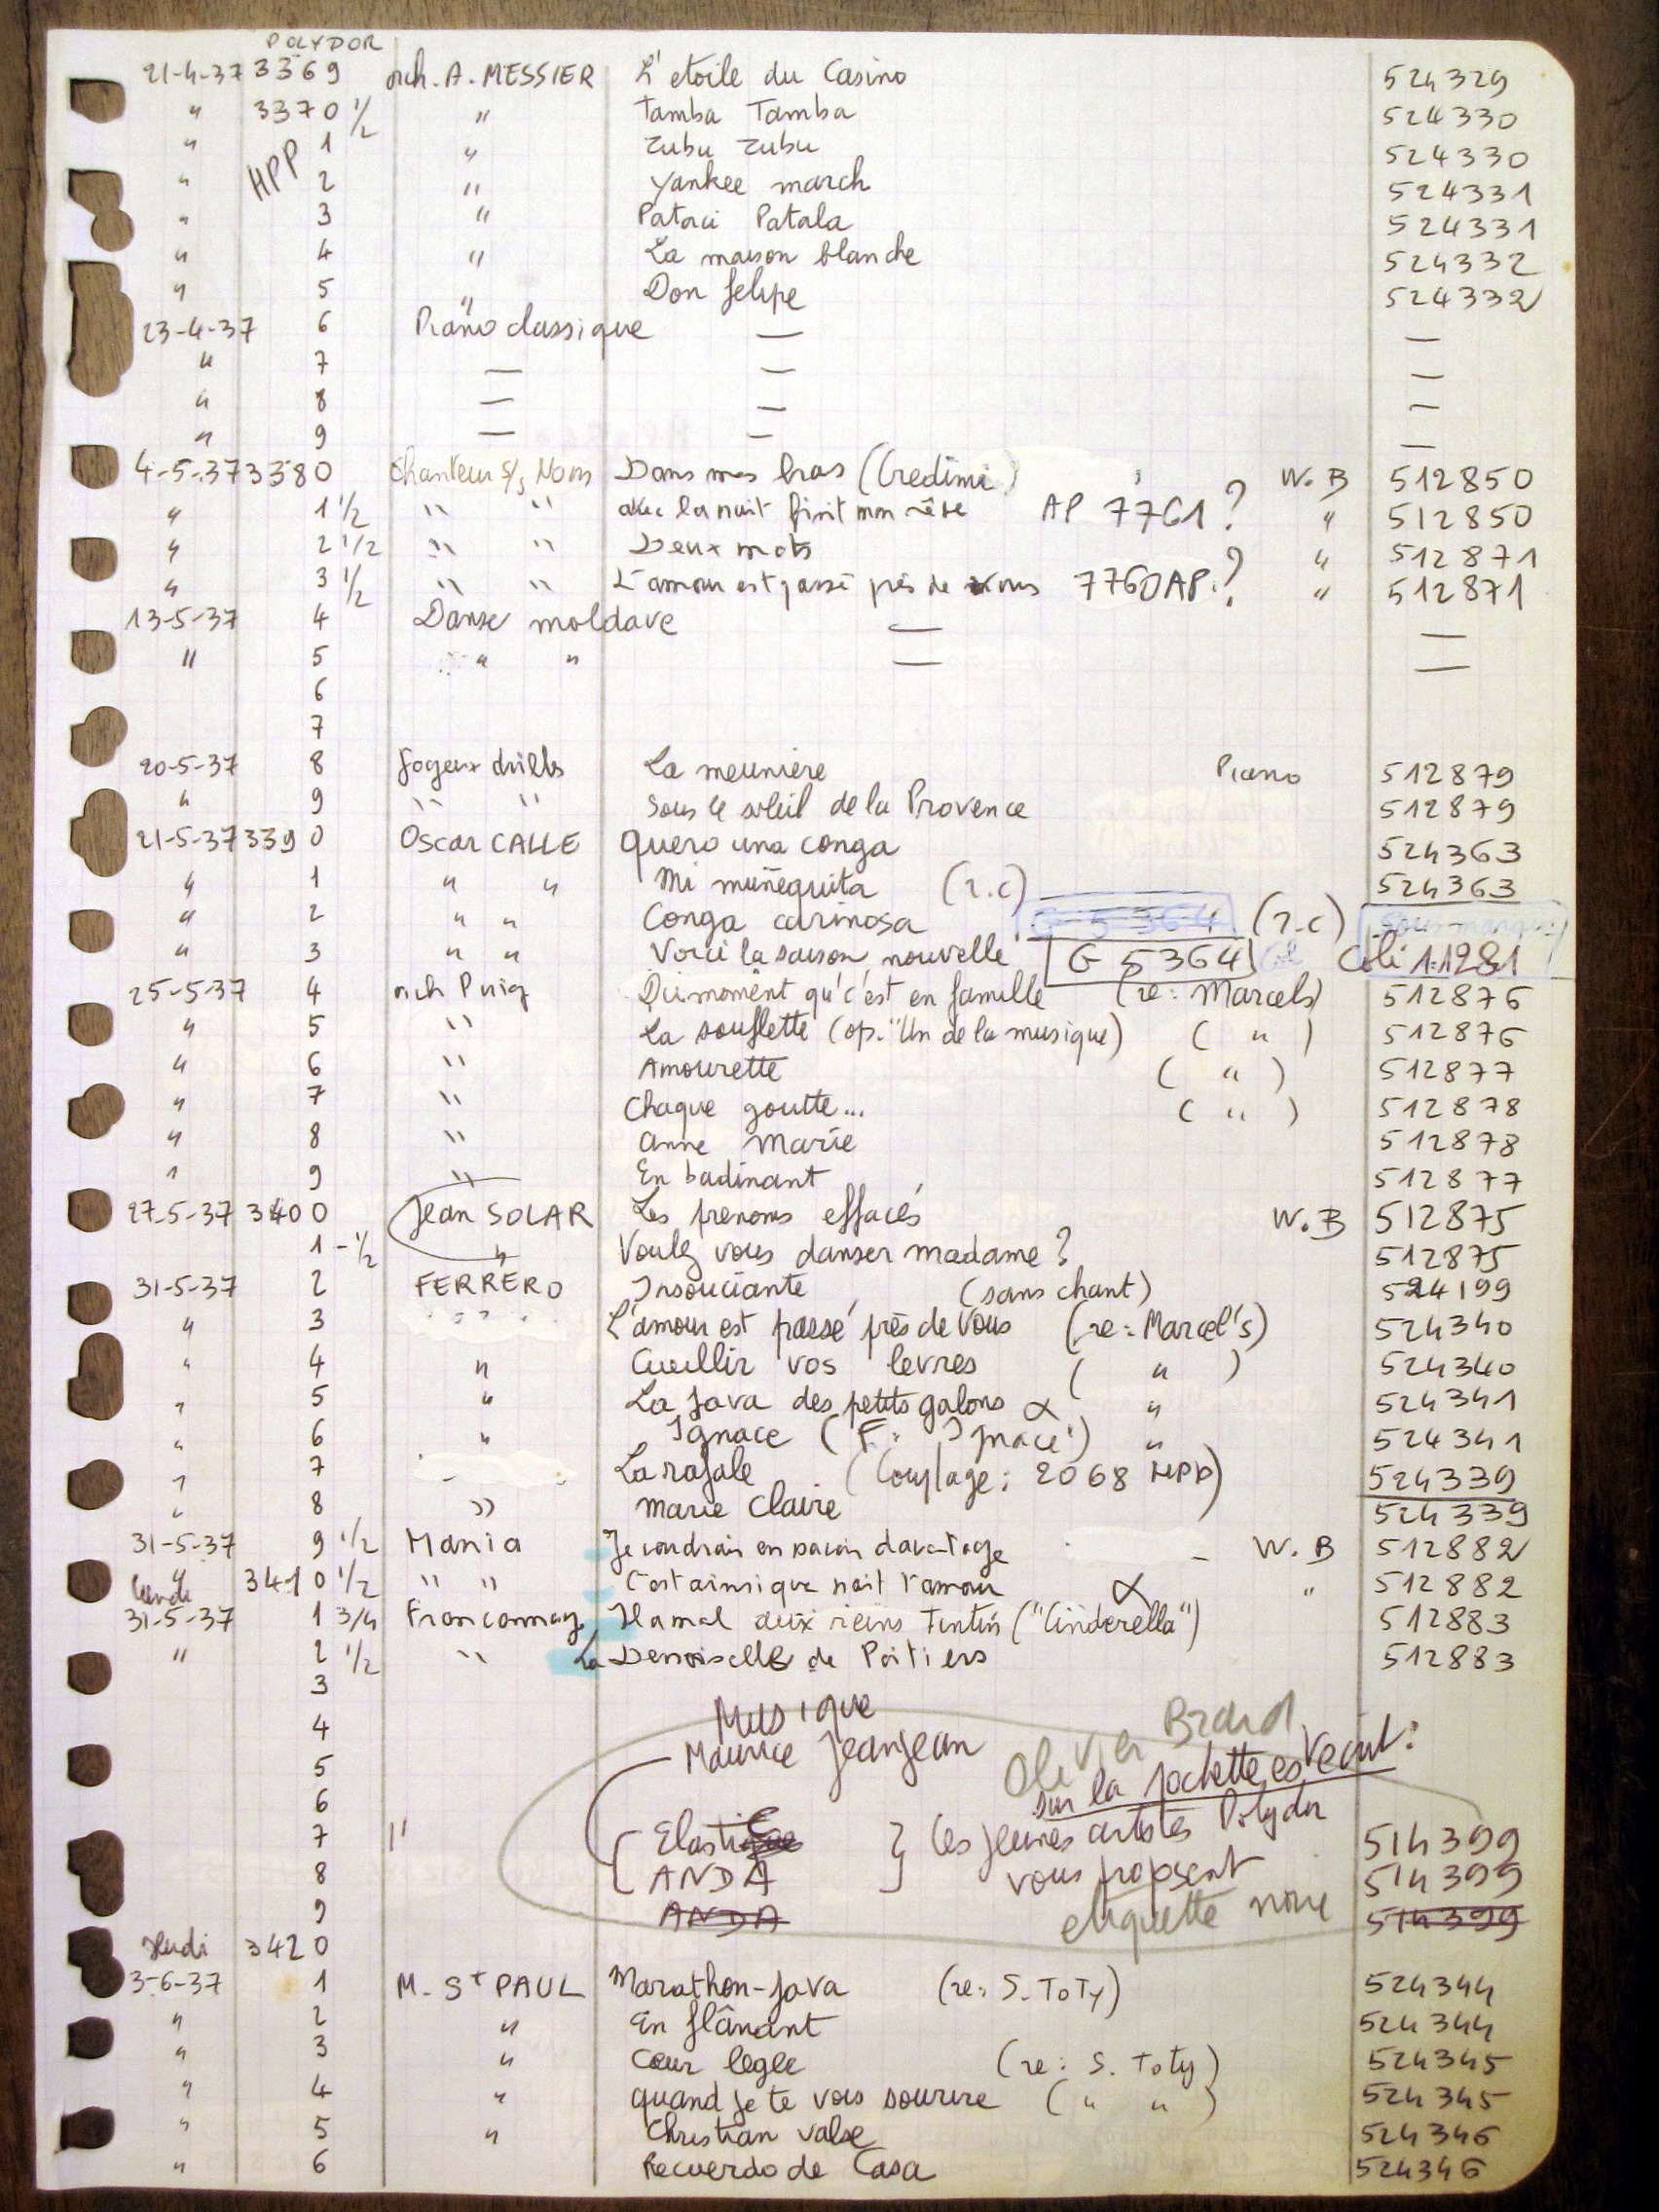 POLYDOR
21-4-37 3369 orch. A. MESSIER L'etoile du Casino 524329
" 3370 1/2 " Tamba Tamba 524330
" HPP 1 " Zubu Zubu 524330
" 2 " Yankee march 524331
" 3 " Pataci Patala 524331
" 4 " La maison blanche 524332
" 5 " Don felipe 524332
23-4-37 6 Piano classique — —
" 7 — — —
" 8 — — —
" 9 — — —
4-5-37 3380 Chanteur s/s Nom Dans mes bras (Credimi) W.B 512850
" 1 1/2 " " avec la nuit finit mon rêve AP 7761? " 512850
" 2 1/2 " " Deux mots " 512871
" 3 1/2 " " L'amour est passé près de vous 7760AP.? " 512871
13-5-37 4 Danse moldave — —
" 5 " " — —
6
7
20-5-37 8 Joyeux drilles La meunière Piano 512879
" 9 " " Sous le soleil de la Provence 512879
21-5-37 3390 Oscar CALLE Quero una conga 524363
" 1 " " Mi muñequita (r.c) 524363
" 2 " " Conga carinosa G 5364 (r.c)
" 3 " " Voici la saison nouvelle G 5364 11281
25-5-37 4 orch Puig Du moment qu'c'est en famille (re: Marcels) 512876
" 5 " La souflette (op. "Un de la musique) ( " ) 512876
" 6 " Amourette ( " ) 512877
" 7 " Chaque goutte... ( " ) 512878
" 8 " Anne Marie 512878
" 9 " En badinant 512877
27-5-37 3400 Jean SOLAR Les prenoms effacés W.B 512875
1 - 1/2 " Voulez vous danser madame? 512875
31-5-37 2 FERRERO Insouciante (sans chant) 524199
" 3 L'amour est passé près de Vous (re: Marcel's) 524340
" 4 " Cueillir vos levres ( " ) 524340
" 5 " La Java des petits galons α " 524341
" 6 " Ignace (F. "Ignace") " 524341
" 7 La rafale (Couplage: 2068 HPP) 524339
" 8 " Marie Claire 524339
31-5-37 9 1/2 Mania Je voudrais en savoir davantage - W.B 512882
" 3410 1/2 " " C'est ainsi que nait l'amour α " 512882
Lundi
31-5-37 1 3/4 Franconnay Il a mal aux reins Tintin ("Cinderella") 512883
" 2 1/2 " La Demoiselle de Poitiers 512883
3
Musique
4 Maurice Jeanjean Olivier Brard
5 sur la pochette est écrit:
6
7 " Elastic } les jeunes artistes Polydor 514399
8 ANDA vous proposent 514399
9 ANDA etiquette noire 514399
Jeudi 3420
3-6-37 1 M. St PAUL Marathon-Java (re: S. ToTy) 524344
" 2 " En flânant 524344
" 3 " Cœur leger (re: S. Toty) 524345
" 4 " quand je te vois sourire ( " " ) 524345
" 5 " Christian valse 524346
" 6 Recuerdo de Casa 524346